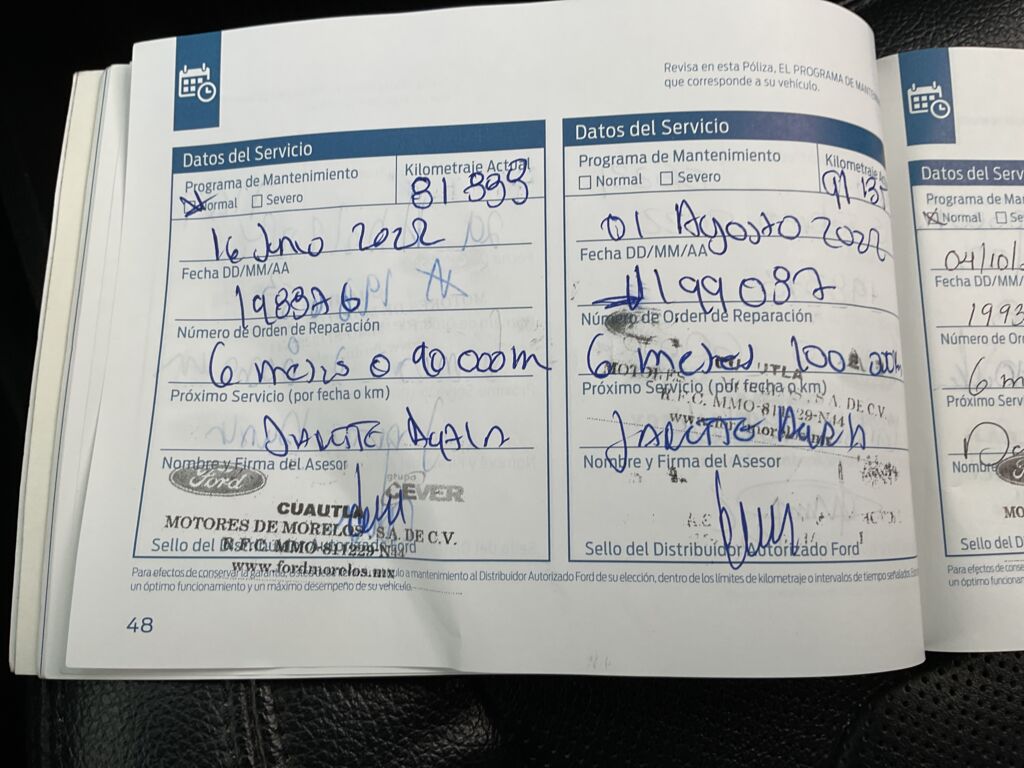 Revisa en esta Póliza, EL PROGRAMA DE
que corresponde a su vehículo.
Datos del Servicio
Programa de Mantenimiento
Normal
Severo
Kilometraje Actual
81 339
16 Junio 2022
Fecha DD/MM/AA
Número de Orden de Reparación
6 meses o 90 000 km
Próximo Servicio (por fecha o km)
Nombre y Firma del Asesor
Ford
grupo
CEVER
CUAUTLA
MOTORES DE MORELOS, S.A. DE C.V.
R.F.C. MMO-811229-N
Sello del
Ford
www.fordmorelos.mx
Datos del Servicio
Programa de Mantenimiento
Normal
Severo
Kilometraje
01 Agosto 2022
Fecha DD/MM/AA
199087
Número de Orden de Reparación
6 meses
Próximo Servicio (por fecha o km)
R.F.C. MMO-811229-N44
S.A. DE C.V.
Nombre y Firma del Asesor
Sello del Distribuidor Autorizado Ford
Para efectos de conservar la garantía,
a mantenimiento al Distribuidor Autorizado Ford de su elección, dentro de los límites de kilometraje o intervalos de tiempo señalados.
un óptimo funcionamiento y un máximo desempeño de su vehículo.
48
Datos del Serv
Programa de Ma
Normal
Se
04/10/
Fecha DD/MM/
1993
Número de Or
6 m
Próximo Serv
Nombre
MO
Sello del D
Para efectos de conse
un óptimo funcionam